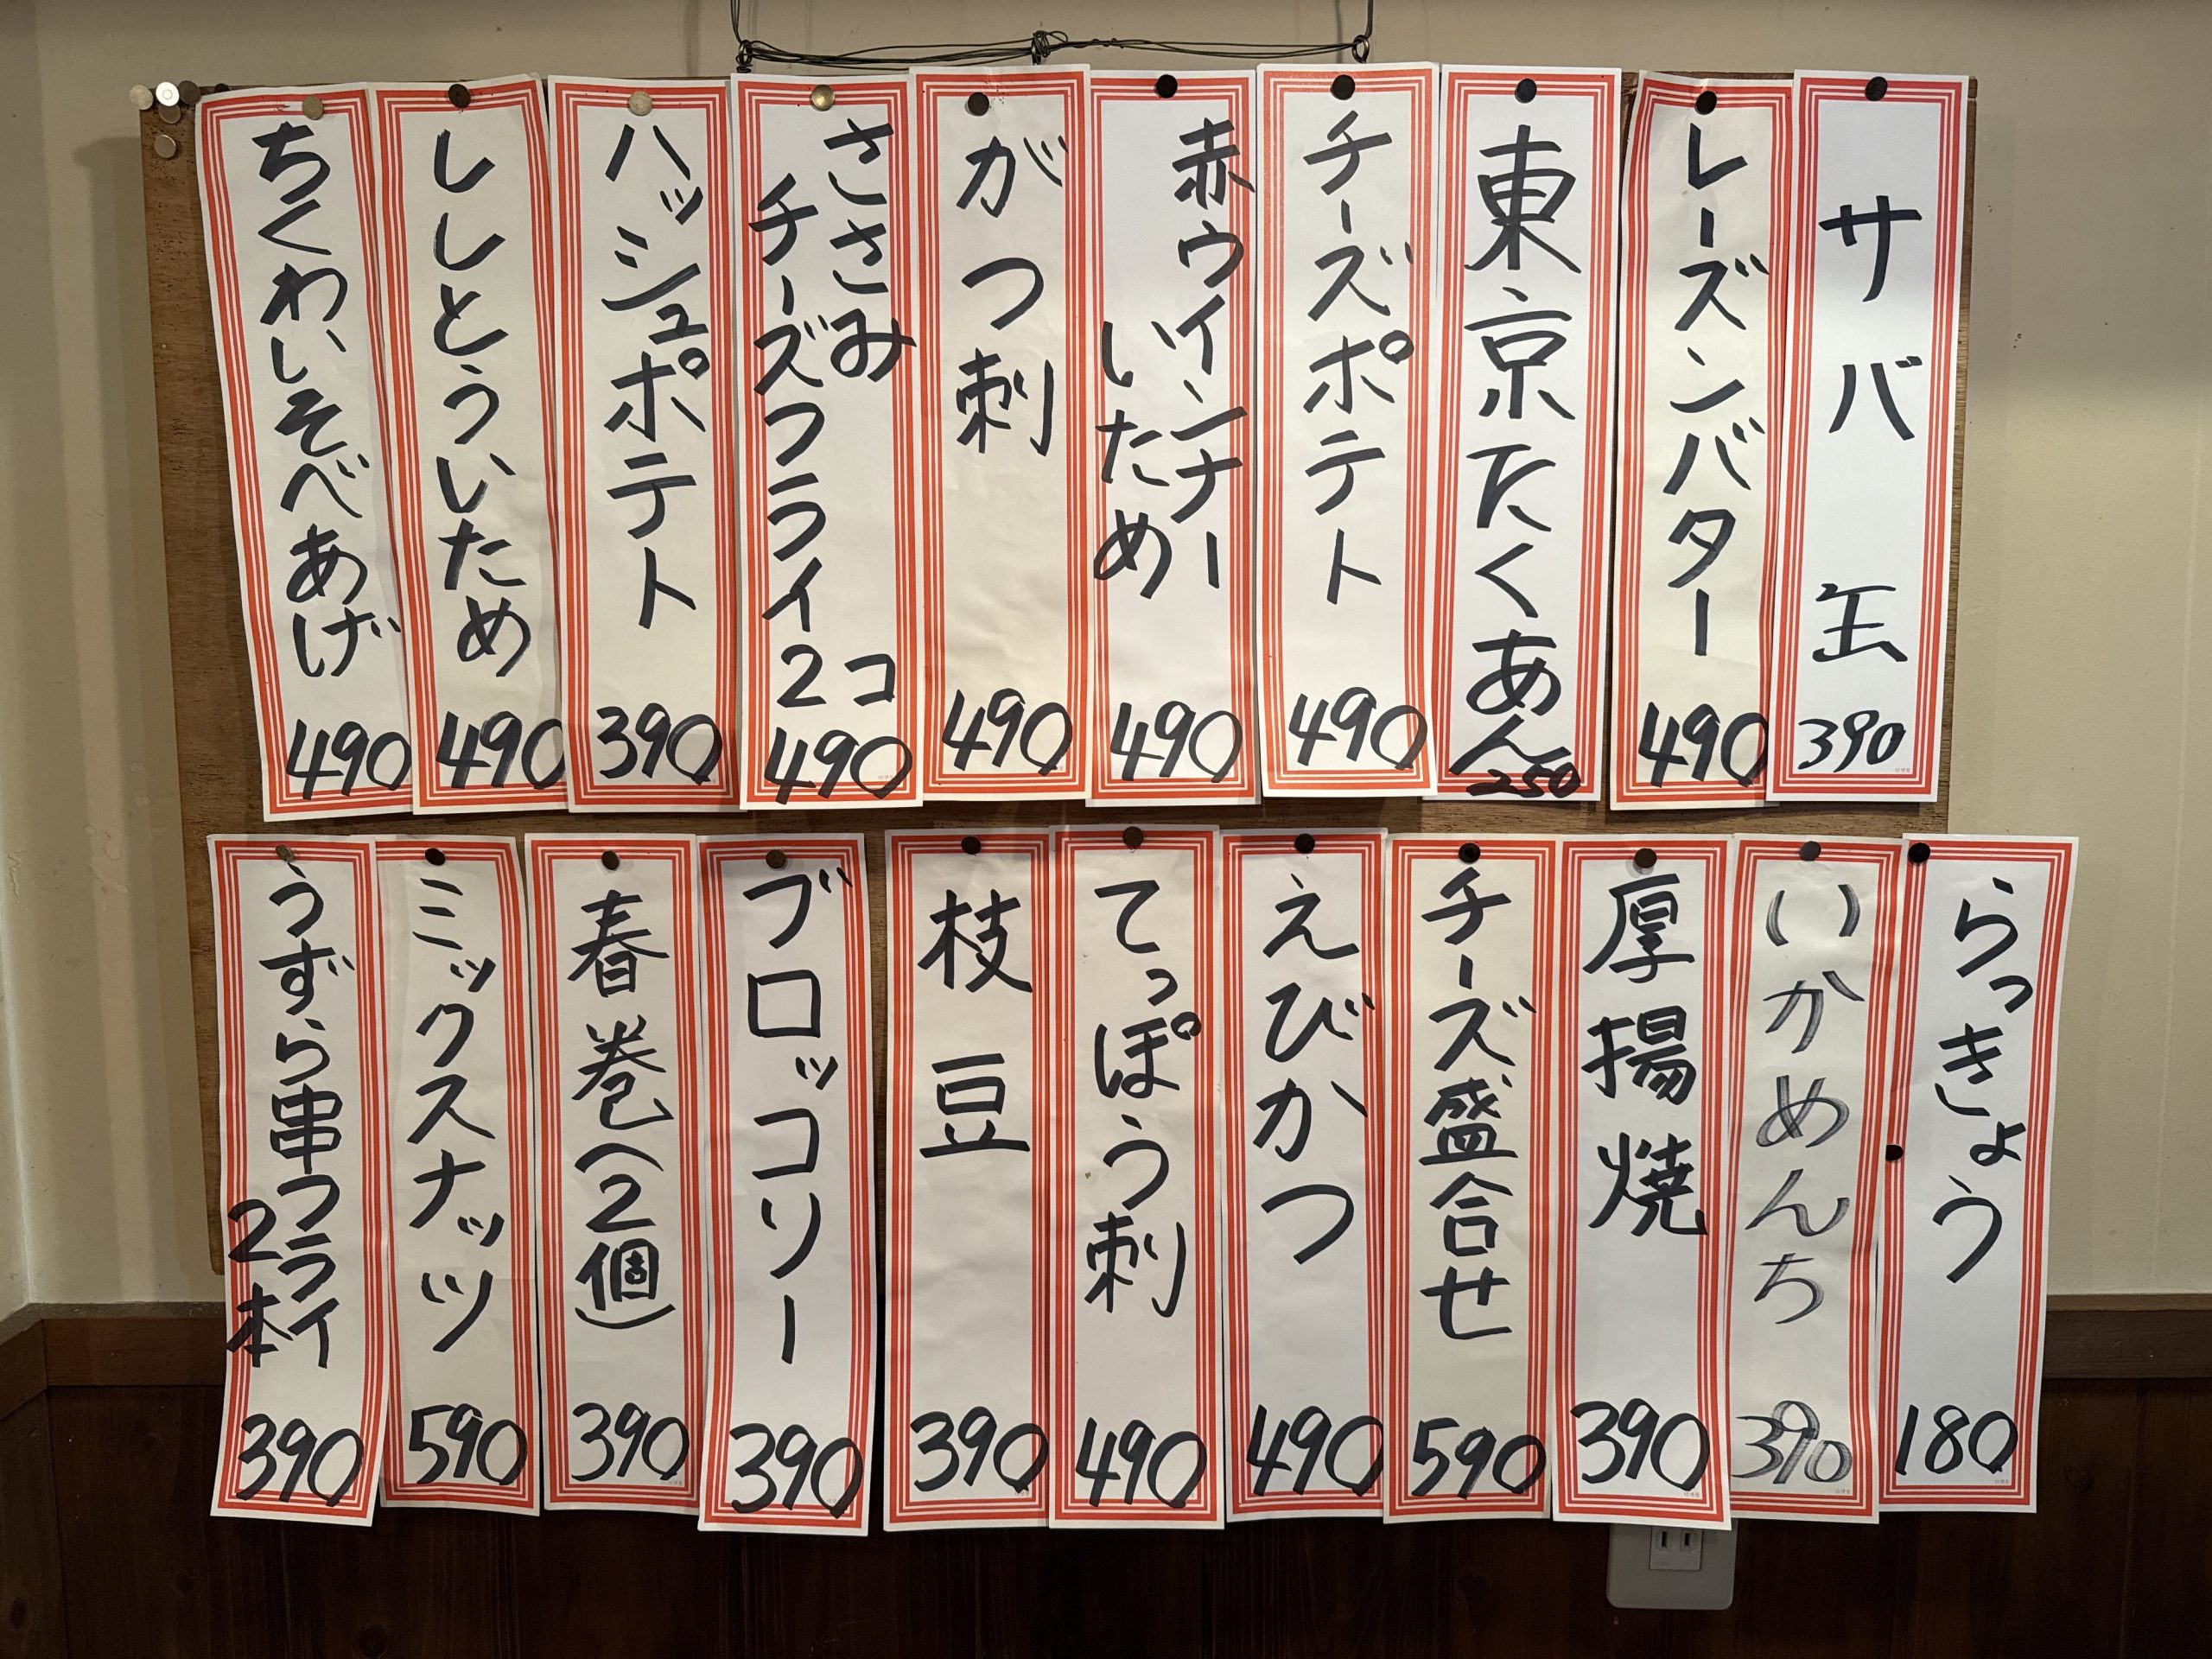 サバ缶
390
レーズンバター
490
東京たくあん
250
チーズポテト
490
赤ウインナー
いため
490
がつ刺
490
ささみ
チーズフライ2コ
490
ハッシュポテト
390
ししとういため
490
ちくわいそべあげ
490
らっきょう
180
いかめんち
390
厚揚焼
390
チーズ盛合せ
590
えびかつ
490
てっぽう刺
490
枝豆
390
ブロッコリー
390
春巻(2個)
390
ミックスナッツ
590
うずら串フライ
2本
390